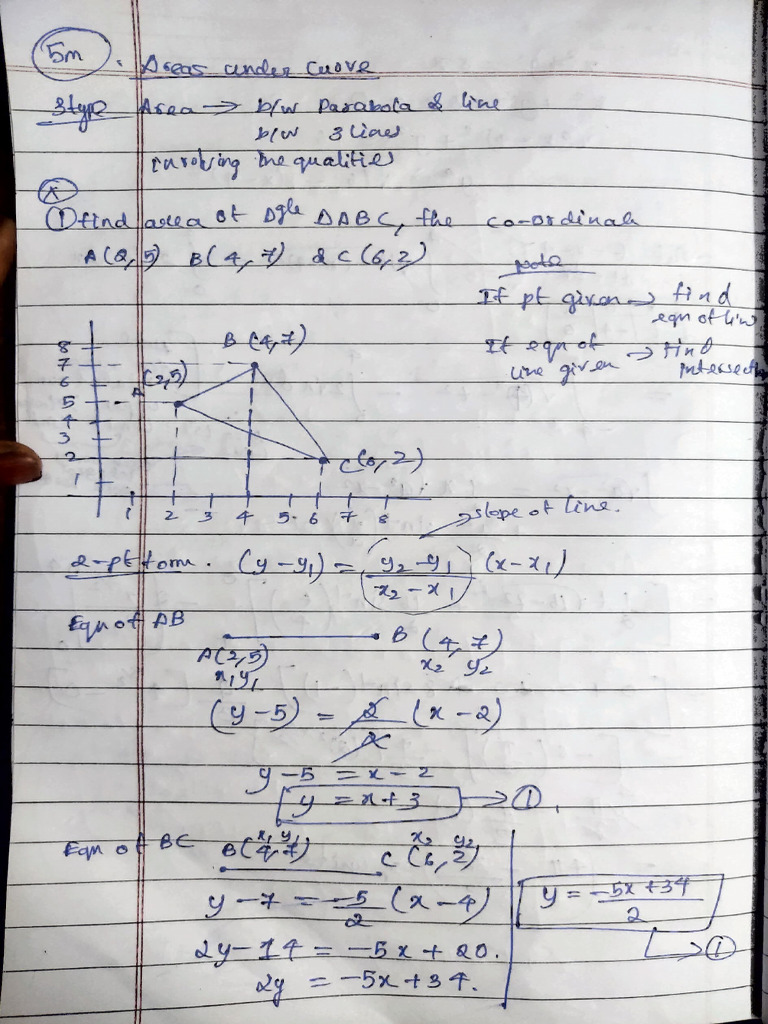 5m. Areas under curve
3type Area → b/w Parabola & line
b/w 3 lines
involving Inequalities
① find area of Dgle ΔABC, the co-ordinate
A(2,5) B(4,7) & C(6,2)
note
If pt given → find
eqn of line
If eqn of
line given → find
intersection
B (4,7)
(2,5)
A
C(6,2)
8
7
6
5
4
3
2
1
1 2 3 4 5 6 7 8
slope of line.
2-pt form. (y-y₁) = (y₂-y₁)/(x₂-x₁) (x-x₁)
Eqn of AB
A(2,5) B (4,7)
x₁y₁ x₂ y₂
(y-5) = 2/2 (x-2)
y-5 = x-2
y = x+3 → ①.
Eqn of BC
x₁ y₁ x₂ y₂
B(4,7) C(6,2)
y-7 = -5/2 (x-4)
2y-14 = -5x+20.
2y = -5x+34.
y = (-5x+34)/2
→ ①